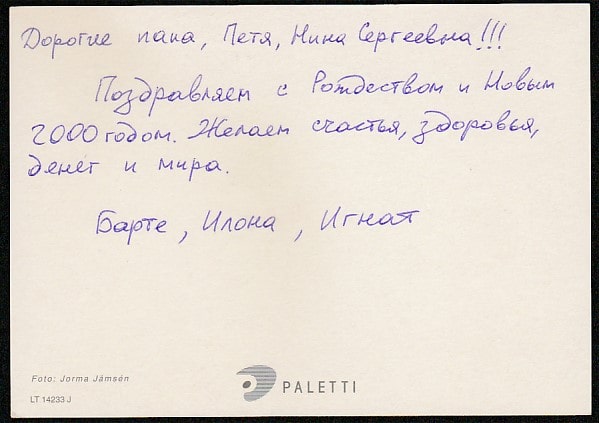 Дорогие папа, Петя, Нина Сергеевна!!!
Поздравляем с Рождеством и Новым
2000 годом. Желаем счастья, здоровья,
денег и мира.
Барте, Илона, Игнат
Foto: Jorma Jämsén
LT 14233 J
PALETTI